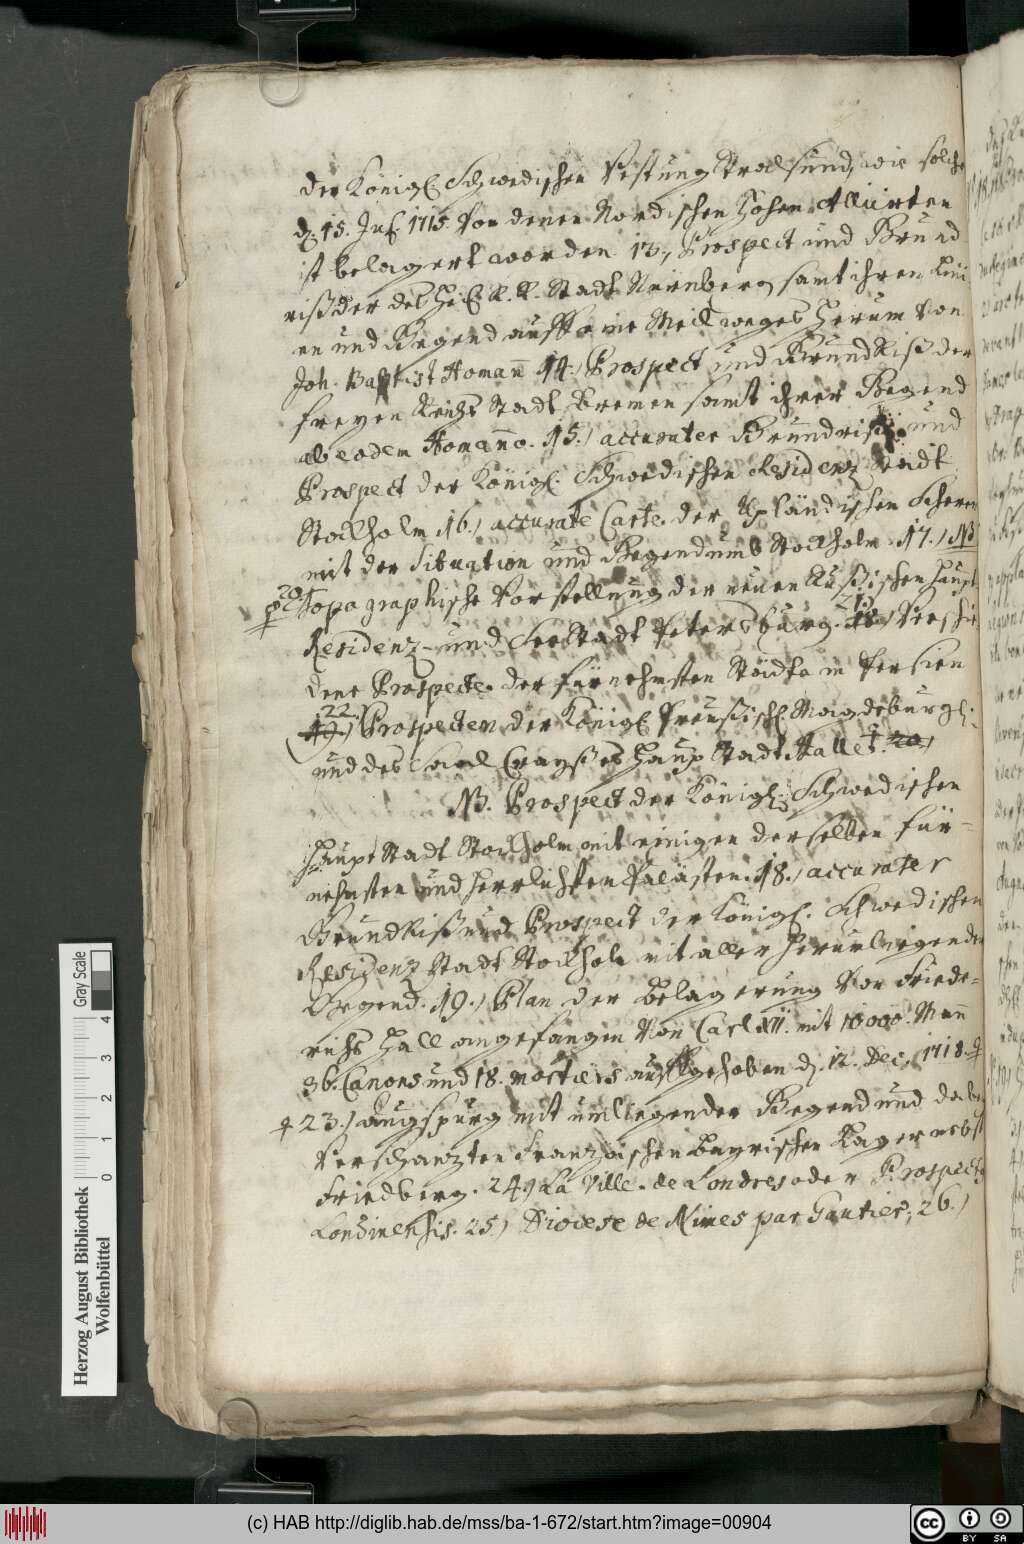 der Königl. Schwedischen Vestung Stralsund, wie solche
d. 15. Jul. 1715. von denen Nordischen Hohen Alliirten
ist belagert worden. 13.) Prospect und Grund
riß der des Heil. R. R. Stadt Nürnberg samt ihren Lini
en und Gegend auff eine Meill weges herum von
Joh. Baptist Homann 14.) Prospect und GrundRiß der
freyen Reichs Stadt Bremen samt ihrer Gegend
ab eodem Homanno. 15.) accurater Grundriß und
Prospect der Königl. Schwedischen Residenz Stadt
Stockholm. 16.) accurate Carte der Upländischen Scheren
mit der Situation und Gegend umb Stockholm. 17.) NB
20.) Topographische Vorstellung der neuen Rußischen Haupt
Residenz- und SeeStadt Petersburg. 21. 18.) Verschie
dene Prospecte der fürnehmsten Städte in Persien
22. 19.) Prospecten der Königl. Preußisch. Magdeburgl.
und des Saal Crayßes Haup Stadt Halle. 20.)
NB. Prospect der Königl. Schwedischen
Haupt Stadt Stockholm mit einigen derselben für-
nehmsten und herrlichsten Palästen. 18.) accurater
GrundRiß und Prospect der Königl. Schwedischen
Residenz Stadt Stockholm mit aller herumliegenden
Gegend. 19.) Plan der Belagerung vor Friede-
richs Hall angefangen von Carl XII. mit 10000. Mann
36. Canons und 18. mortiers auffgehoben d. 12. Dec. 1718.
23.) Augspurg mit umliegender Gegend und dabey
verschanzten Französischen Bayrischen Lager nebst
Friedberg. 24.) La Ville de Londres oder Prospectus
Londinensis. 25.) Diocese de Nimes par Gautier; 26.)
Gray Scale
0 1 2 3 4
Herzog August Bibliothek
Wolfenbüttel
(c) HAB http://diglib.hab.de/mss/ba-1-672/start.htm?image=00904
cc BY SA